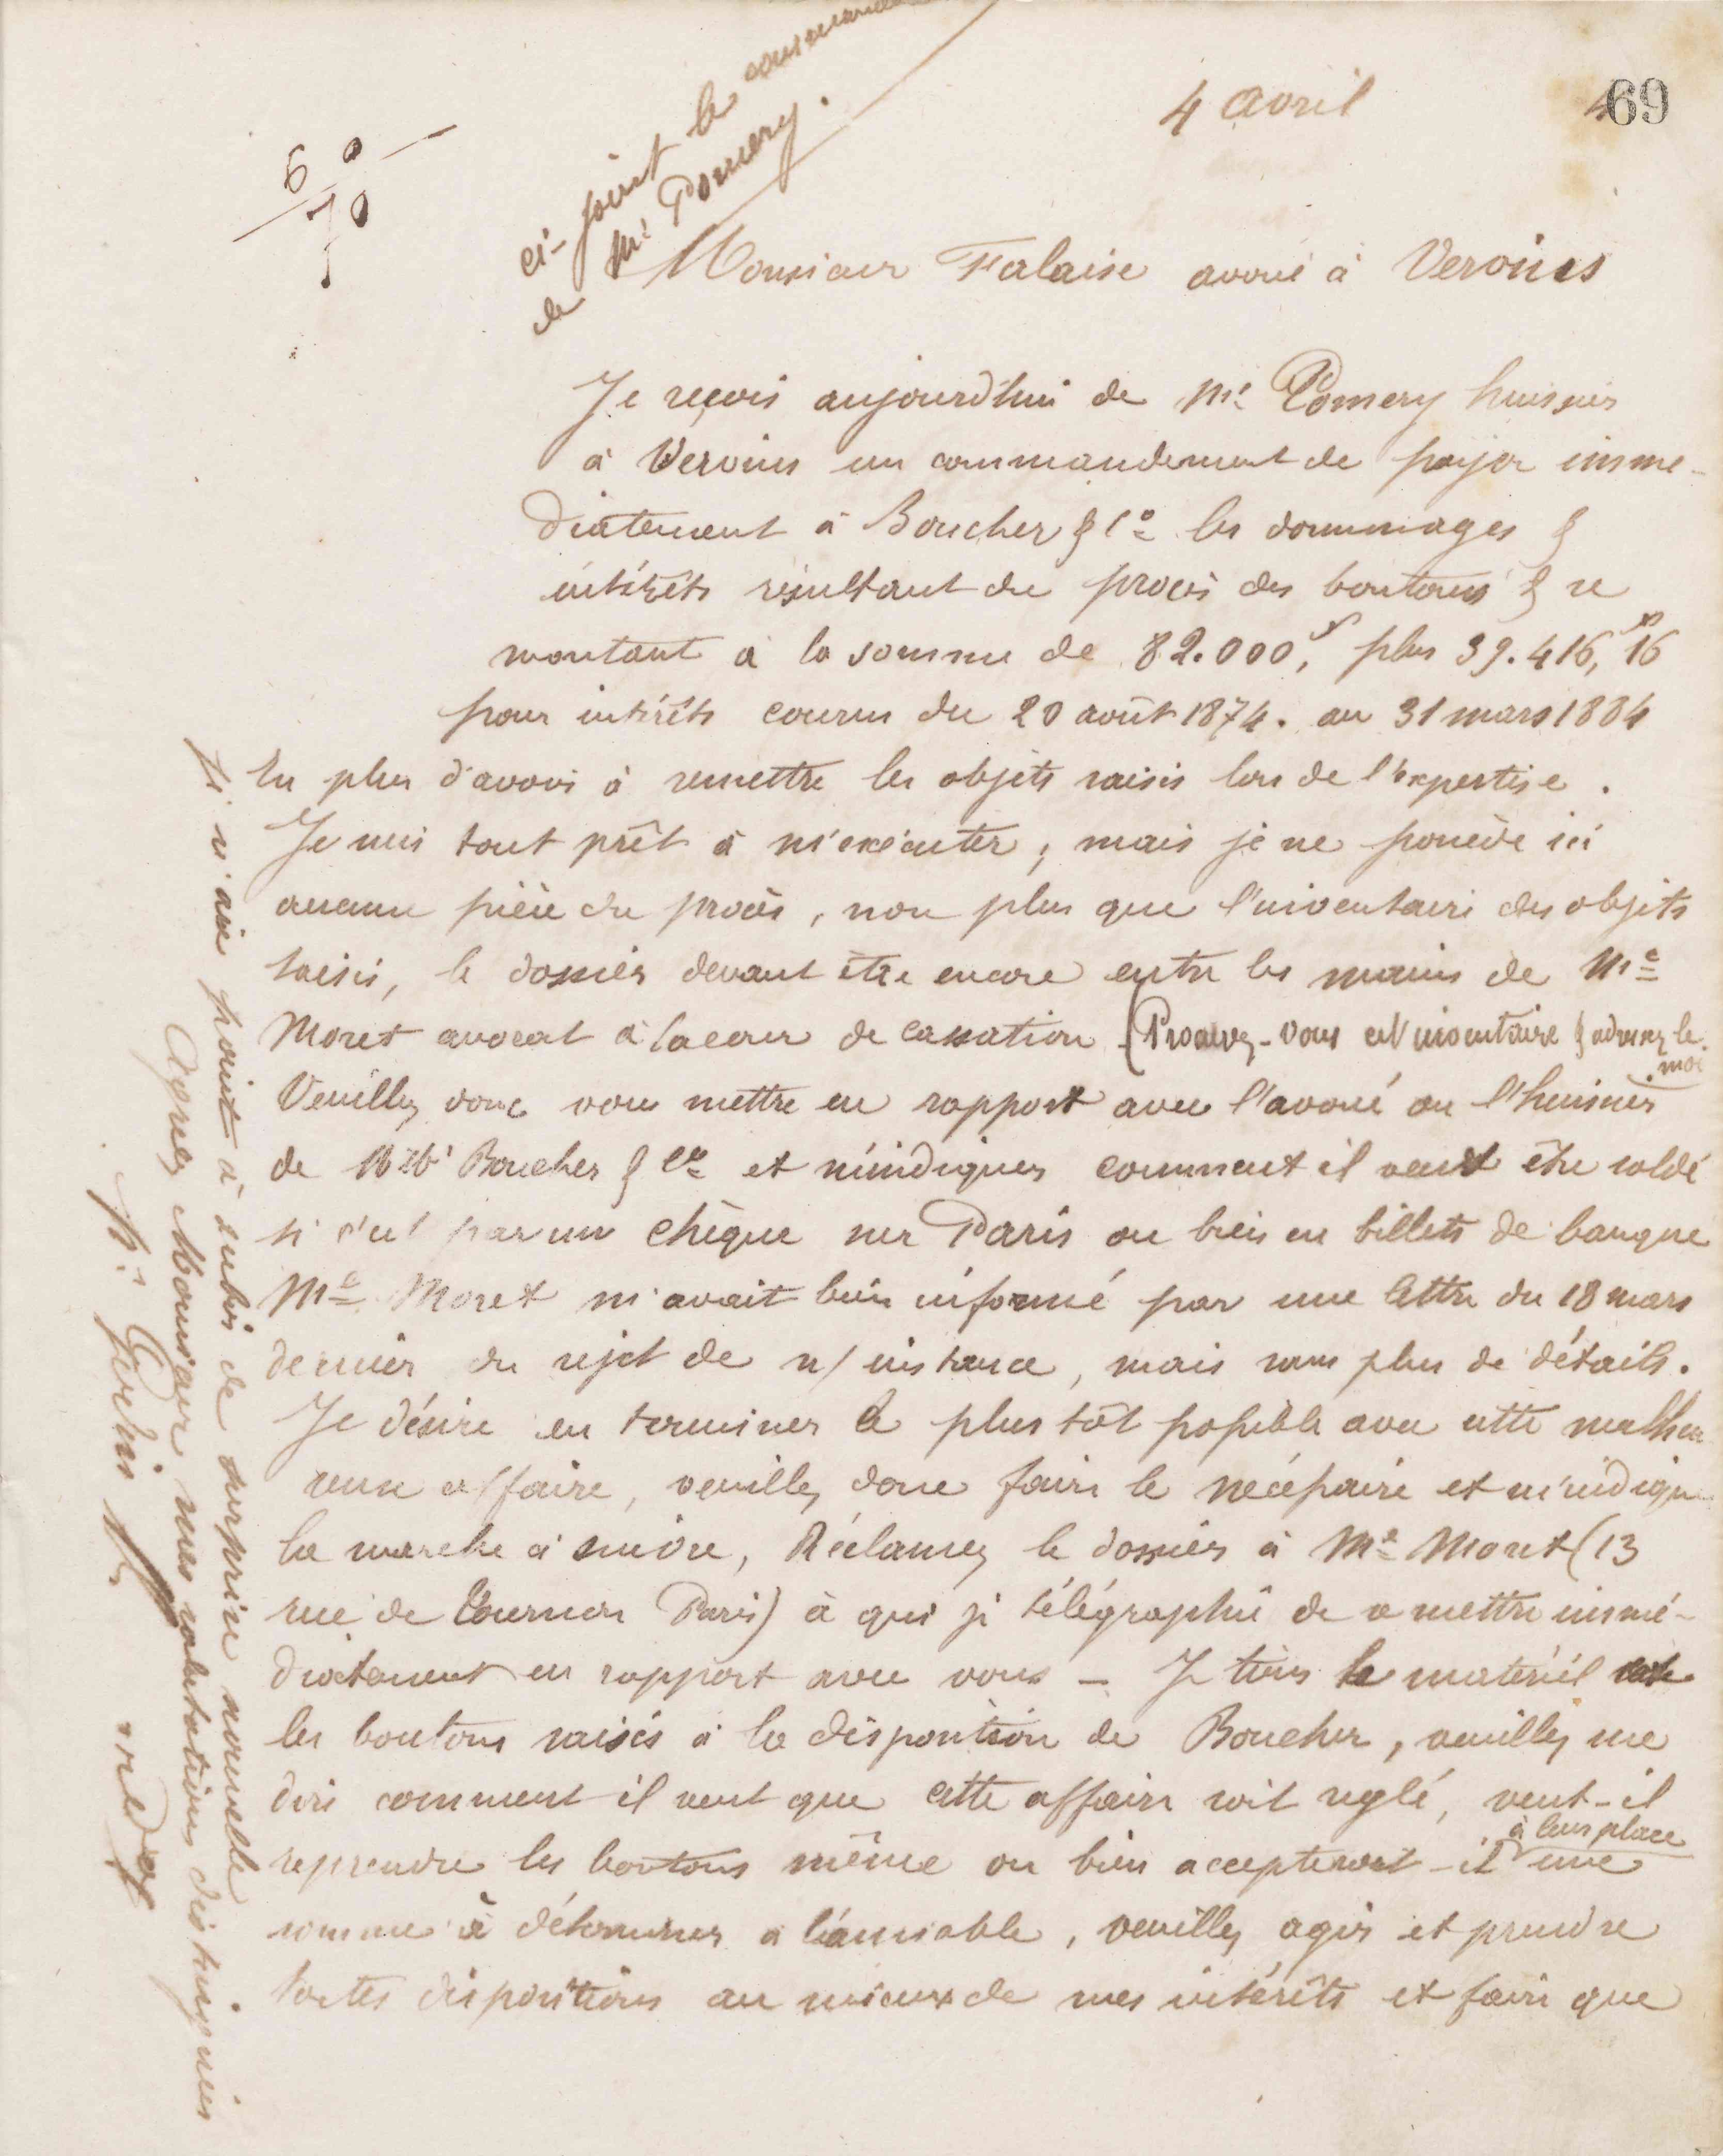 4 Avril
69
6 0
70
ci-joint le commandement
de Me Pomery.
Monsieur Falaise avoué à Vervins
Je reçois aujourd'hui de Me Pomery huissier
à Vervins un commandement de payer immé-
diatement à Boucher & Cie les dommages &
intérêts résultant du procès des boutons & se
montant à la somme de 82.000,f plus 39.416,f16
pour intérêts courus du 20 août 1874. au 31 mars 1884
En plus d'avoir à remettre les objets saisis lors de l'expertise.
Je suis tout prêt à m'exécuter, mais je ne possède ici
aucune pièce du procès, non plus que l'inventaire des objets
saisis, le dossier devant être encore entre les mains de Me
Moret avocat à la cour de cassation (Procurez-vous cet inventaire & adressez le
moi
Veuillez donc vous mettre en rapport avec l'avoué ou l'huissier
de MMrs Boucher & Cie et m'indiquer comment il veut être soldé
si c'est par un chèque sur Paris ou bien en billets de banque
Me Moret m'avait bien informé par une lettre du 18 mars
dernier du rejet de n/ instance, mais sans plus de détails.
Je désire en terminer le plus tôt possible avec cette malheu
reuse affaire, veuillez donc faire le nécessaire et m'indiquer
la marche à suivre, Réclamez le dossier à Me Moret (13
rue de Tournon Paris) à qui je télégraphie de se mettre immé-
diatement en rapport avec vous - Je tiens le matériel et
les boutons saisis à la disposition de Boucher, veuillez me
dire comment il veut que cette affaire soit réglé, veut-il
reprendre les boutons même ou bien accepterait-il à leur place une
somme à déterminer à l'amiable, veuillez agir et prendre
toutes dispositions au mieux de mes intérêts et faire que
je n'aie point à subir de surprise nouvelle
Agréez Monsieur mes salutations distinguées
Pr Godin